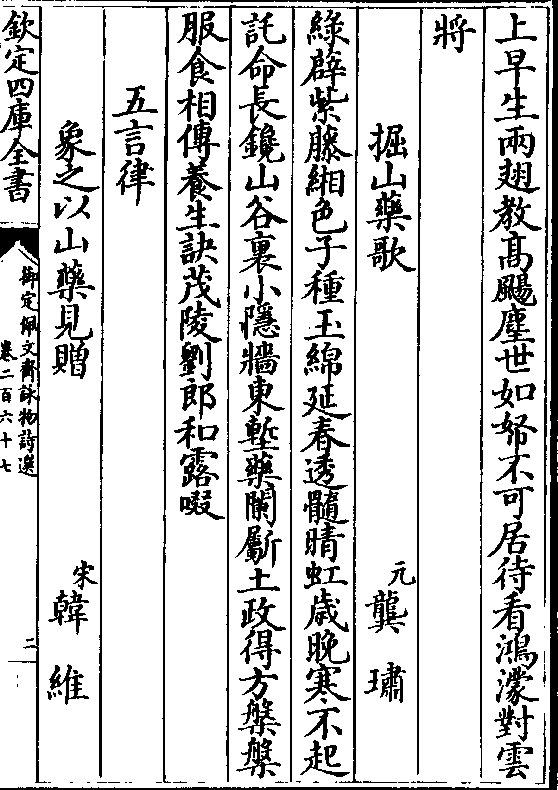 上早生兩翅教高颺塵世如帑不可居待看鴻濛對雲
將
掘山藥歌 元龔璛
綠辟紫藤緗色子種玉綿延春透髓晴虹歳晚寒不起
託命長鑱山谷裏小隱牆東塹藥闌斸土政得方槃槃
服食相傳養生訣茂陵劉郎和露啜
五言律
象之以山藥見贈 宋韓維
欽定四庫全書
御定佩文齋詠物詩選
卷二百六十七
二